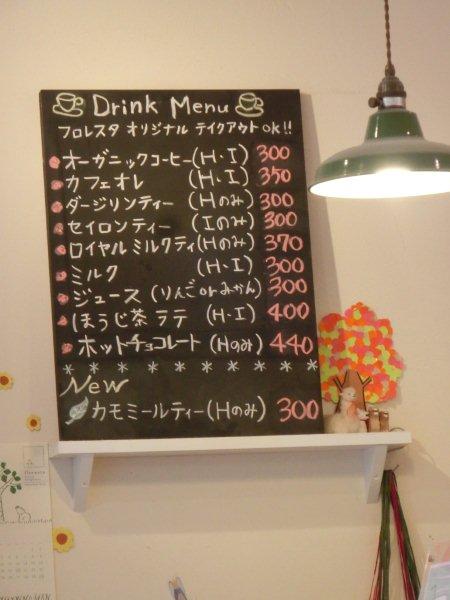 Drink Menu
フロレスタ オリジナル テイクアウト ok!!
オーガニックコーヒー (H・I) 300
カフェオレ (H・I) 350
ダージリンティー (Hのみ) 300
セイロンティー (Iのみ) 300
ロイヤルミルクティ (Hのみ) 370
ミルク (H・I) 300
ジュース (りんご or みかん) 300
ほうじ茶ラテ (H・I) 400
ホットチョコレート (Hのみ) 440
* * * * * * * * * * *
New
カモミールティー (Hのみ) 300